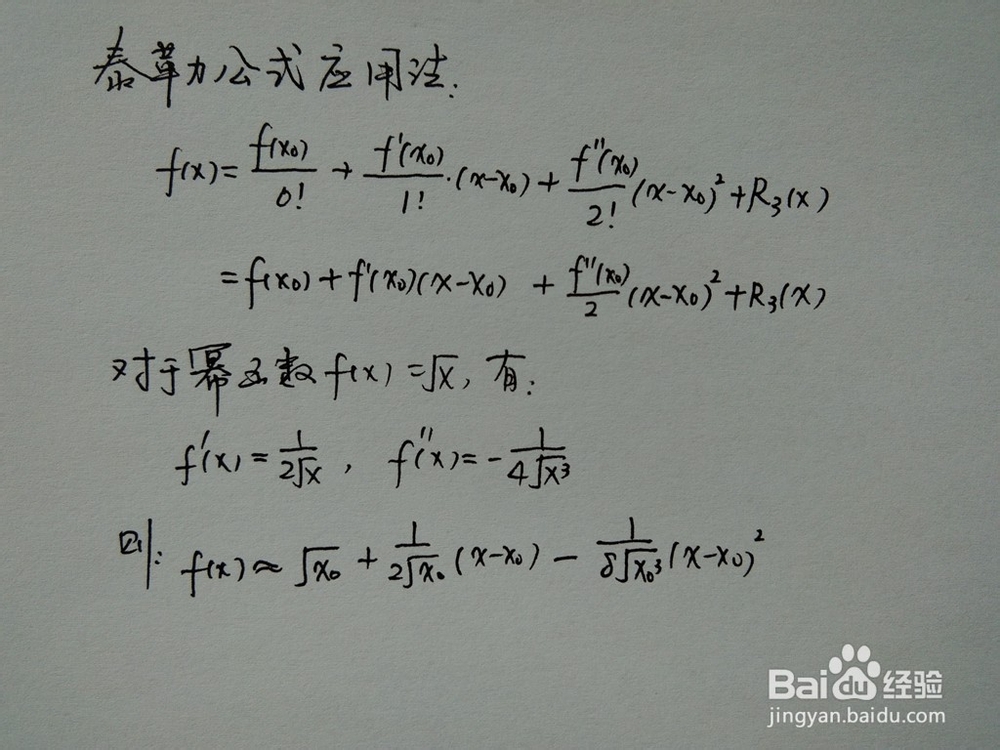 泰勒公式应用法:
f(x)=f(x₀)/0! + f'(x₀)/1!·(x-x₀)+f''(x₀)/2!(x-x₀)²+R₃(x)
=f(x₀)+f'(x₀)(x-x₀) + f''(x₀)/2(x-x₀)²+R₃(x)
对于幂函数f(x)=√x,有:
f'(x)=1/2√x, f''(x)=-1/4√x³
则: f(x)≈√x₀ + 1/2√x₀(x-x₀) - 1/8√x₀³(x-x₀)²
Baidu经验
jingyan.baidu.com